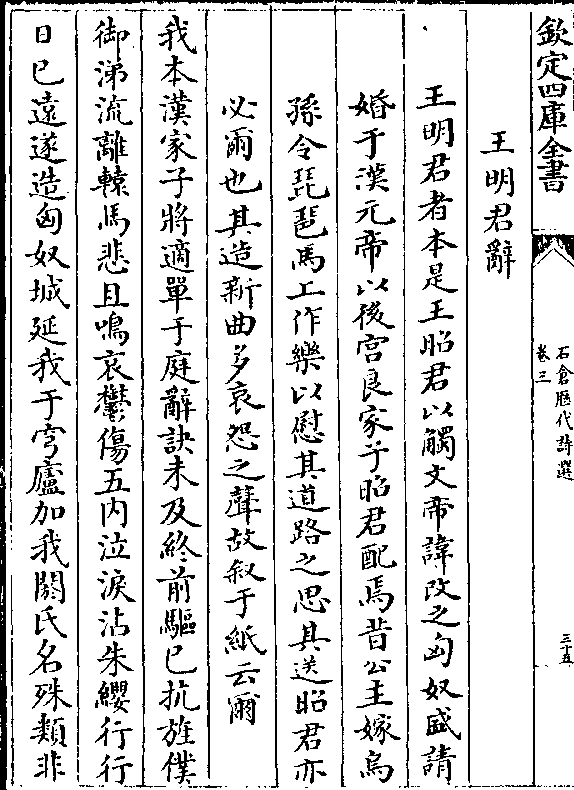 欽定四庫全書
石倉歷代詩選
卷三
三十五
王明君辭
王明君者本是王昭君以觸文帝諱改之匈奴盛請
婚于漢元帝以後宫良家子昭君配焉昔公主嫁烏
孫令琵琶馬工作樂以慰其道路之思其送昭君亦
必爾也其造新曲多哀怨之聲故叙于紙云爾
我本漢家子將適單于庭辭訣未及終前驅已抗旌僕
御涕流離轅馬悲且鳴哀鬱傷五内泣淚沾朱纓行行
日已遠遂造匈奴城延我于穹廬加我閼氏名殊類非